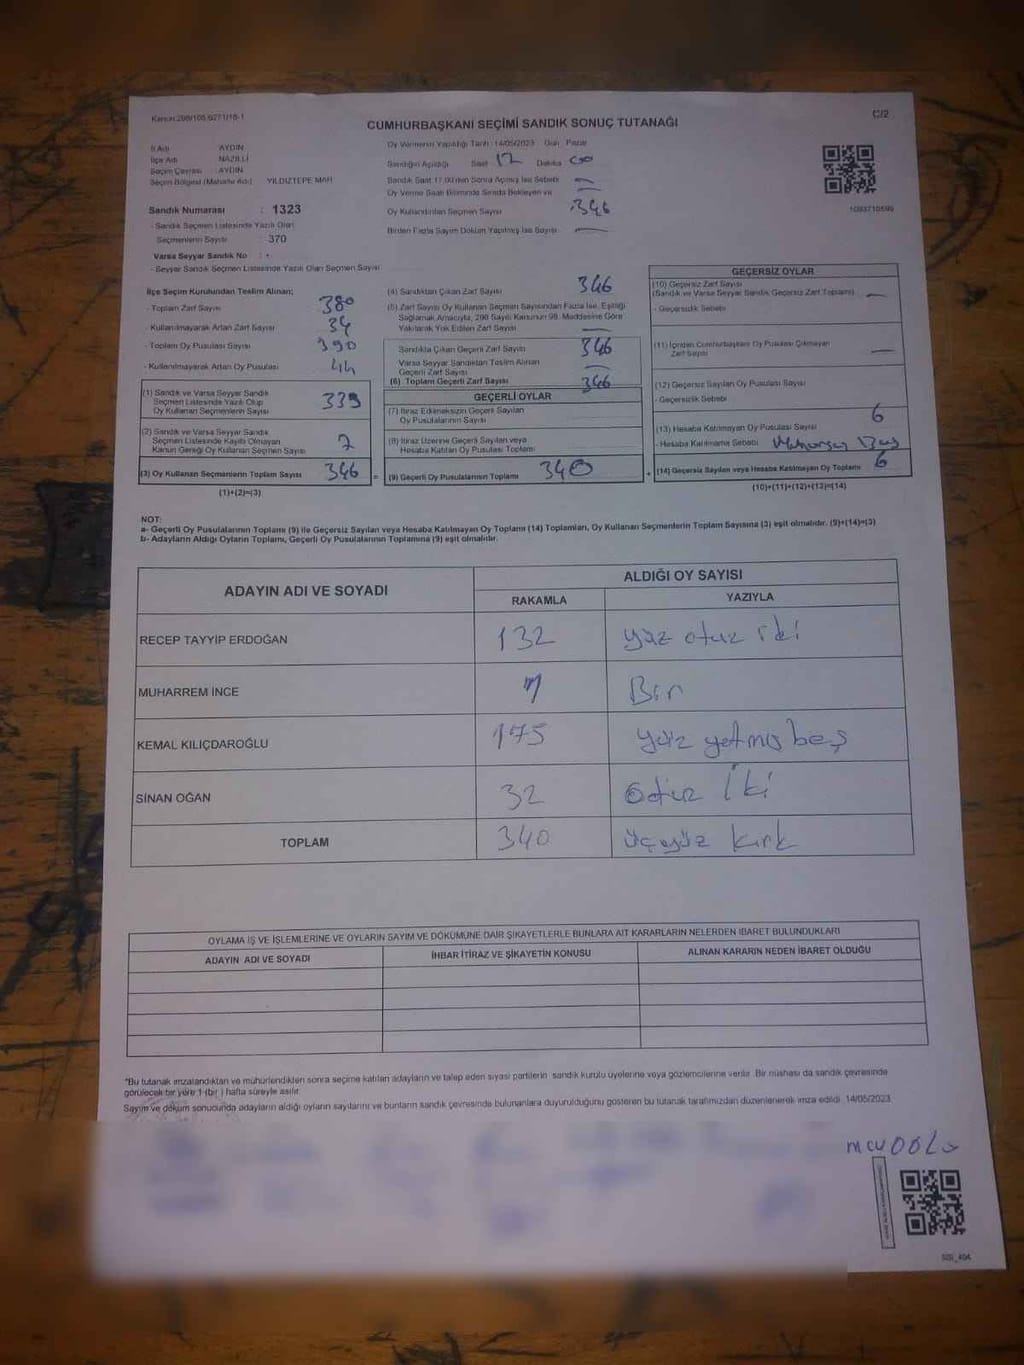 Kanun:298/105,6271/18-1
C/2
CUMHURBAŞKANI SEÇİMİ SANDIK SONUÇ TUTANAĞI
İl Adı AYDIN
İlçe Adı NAZİLLİ
Seçim Çevresi AYDIN
Seçim Bölgesi (Mahalle Adı) YILDIZTEPE MAH
Sandık Numarası : 1323
- Sandık Seçmen Listesinde Yazılı Olan
Seçmenlerin Sayısı : 370
Varsa Seyyar Sandık No : -
- Seyyar Sandık Seçmen Listesinde Yazılı Olan Seçmen Sayısı
Oy Vermenin Yapıldığı Tarih :14/05/2023 Gün :Pazar
Sandığın Açıldığı Saat 17 Dakika 00
Sandık Saat 17.00'den Sonra Açılmış İse Sebebi —
Oy Verme Saati Bitiminde Sırada Bekleyen ve —
Oy Kullandırılan Seçmen Sayısı 346
Birden Fazla Sayım Döküm Yapılmış İse Sayısı —
İlçe Seçim Kurulundan Teslim Alınan;
- Toplam Zarf Sayısı 380
- Kullanılmayarak Artan Zarf Sayısı 34
- Toplam Oy Pusulası Sayısı 390
- Kullanılmayarak Artan Oy Pusulası 44
(1) Sandık ve Varsa Seyyar Sandık
Seçmen Listesinde Yazılı Olup
Oy Kullanan Seçmenlerin Sayısı 339
(2) Sandık ve Varsa Seyyar Sandık
Seçmen Listesinde Kayıtlı Olmayan
Kanun Gereği Oy Kullanan Seçmen Sayısı 7
(3) Oy Kullanan Seçmenlerin Toplam Sayısı 346 =
(1)+(2)=(3)
(4) Sandıktan Çıkan Zarf Sayısı 346
(5) Zarf Sayısı Oy Kullanan Seçmen Sayısından Fazla İse, Eşitliği
Sağlamak Amacıyla, 298 Sayılı Kanunun 98. Maddesine Göre
Yakılarak Yok Edilen Zarf Sayısı —
Sandıkta Çıkan Geçerli Zarf Sayısı 346
Varsa Seyyar Sandıktan Teslim Alınan
Geçerli Zarf Sayısı —
(6) Toplam Geçerli Zarf Sayısı 346
GEÇERLİ OYLAR
(7) İtiraz Edilmeksizin Geçerli Sayılan
Oy Pusulalarının Sayısı
(8) İtiraz Üzerine Geçerli Sayılan veya
Hesaba Katılan Oy Pusulası Toplamı
(9) Geçerli Oy Pusulalarının Toplamı 340 +
GEÇERSİZ OYLAR
(10) Geçersiz Zarf Sayısı
(Sandık ve Varsa Seyyar Sandık Geçersiz Zarf Toplamı) —
- Geçersizlik Sebebi
(11) İçinden Cumhurbaşkanı Oy Pusulası Çıkmayan
Zarf Sayısı —
(12) Geçersiz Sayılan Oy Pusulası Sayısı
- Geçersizlik Sebebi
(13) Hesaba Katılmayan Oy Pusulası Sayısı 6
- Hesaba Katılmama Sebebi
(14) Geçersiz Sayılan veya Hesaba Katılmayan Oy Toplamı 6
(10)+(11)+(12)+(13)=(14)
NOT:
a- Geçerli Oy Pusulalarının Toplamı (9) ile Geçersiz Sayılan veya Hesaba Katılmayan Oy Toplamı (14) Toplamları, Oy Kullanan Seçmenlerin Toplam Sayısına (3) eşit olmalıdır. (9)+(14)=(3)
b- Adayların Aldığı Oyların Toplamı, Geçerli Oy Pusulalarının Toplamına (9) eşit olmalıdır.
ADAYIN ADI VE SOYADI ALDIĞI OY SAYISI
RAKAMLA YAZIYLA
RECEP TAYYİP ERDOĞAN 132 yüz otuz iki
MUHARREM İNCE 1 Bir
KEMAL KILIÇDAROĞLU 175 yüz yetmiş beş
SİNAN OĞAN 32 otuz İki
TOPLAM 340 üçyüz kırk
OYLAMA İŞ VE İŞLEMLERİNE VE OYLARIN SAYIM VE DÖKÜMÜNE DAİR ŞİKAYETLERLE BUNLARA AİT KARARLARIN NELERDEN İBARET BULUNDUKLARI
ADAYIN ADI VE SOYADI İHBAR İTİRAZ VE ŞİKAYETİN KONUSU ALINAN KARARIN NEDEN İBARET OLDUĞU
*Bu tutanak imzalandıktan ve mühürlendikten sonra seçime katılan adayların ve talep eden siyasi partilerin sandık kurulu üyelerine veya gözlemcilerine verilir. Bir nüshası da sandık çevresinde
görülecek bir yere 1 (bir ) hafta süreyle asılır.
Sayım ve döküm sonucunda adayların aldığı oyların sayılarını ve bunların sandık çevresinde bulunanlara duyurulduğunu gösteren bu tutanak tarafımızdan düzenlenerek imza edildi. 14/05/2023